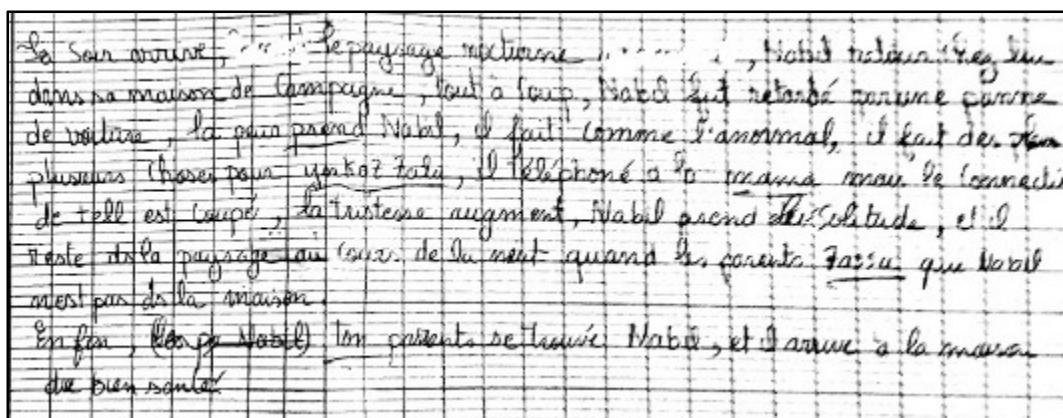 La soir arrive, ..... le paysage nocturne ........., Nabil retour chez lui
dans sa maison de Campagne, tout à coup, Nabil fut retardé par une panne
de voiture, la peur prend Nabil, il fait comme l'anormal, il fait des
plusieurs choses pour yorkoz 3ala, il téléphoné a la mama mais le connecti
de tell est coupé, la tristesse augment, Nabil prend solitude, et il
reste ds la paysage au cours de la nuit quand les parents que Nabil
n'est pas ds la maison.
En fin, (les pa Nabil) ton parents se trouvé Nabil, et il arrive a la maison
de bien santé.